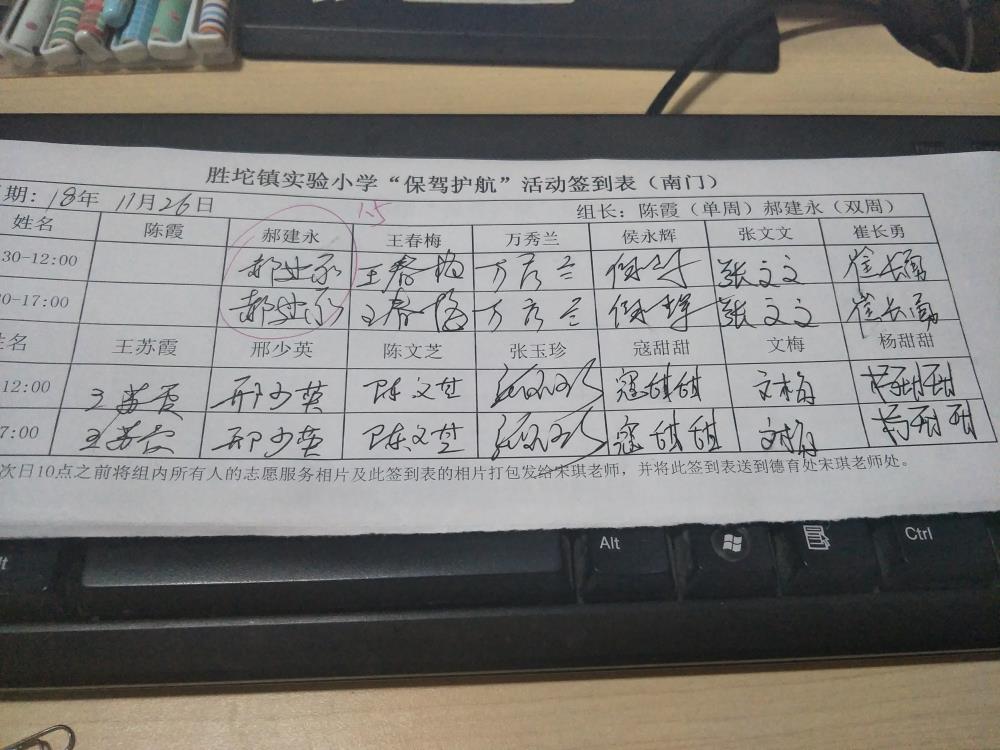 胜坨镇实验小学“保驾护航”活动签到表（南门）
期：18年 11月26日 组长：陈霞（单周）郝建永（双周）
1.5
姓名 陈霞 郝建永 王春梅 万秀兰 侯永辉 张文文 崔长勇
30-12:00 郝建永 王春梅 万秀兰 张文文 崔长勇
0-17:00 郝建永 王春梅 万秀兰 侯永辉 张文文 崔长勇
姓名 王苏霞 邢少英 陈文芝 张玉珍 寇甜甜 文梅 杨甜甜
12:00 王苏霞 邢少英 陈文芝 张玉珍 寇甜甜 文梅 杨甜甜
7:00 王苏霞 邢少英 陈文芝 张玉珍 寇甜甜 文梅 杨甜甜
次日10点之前将组内所有人的志愿服务相片及此签到表的相片打包发给宋琪老师，并将此签到表送到德育处宋琪老师处。
Alt Ctrl